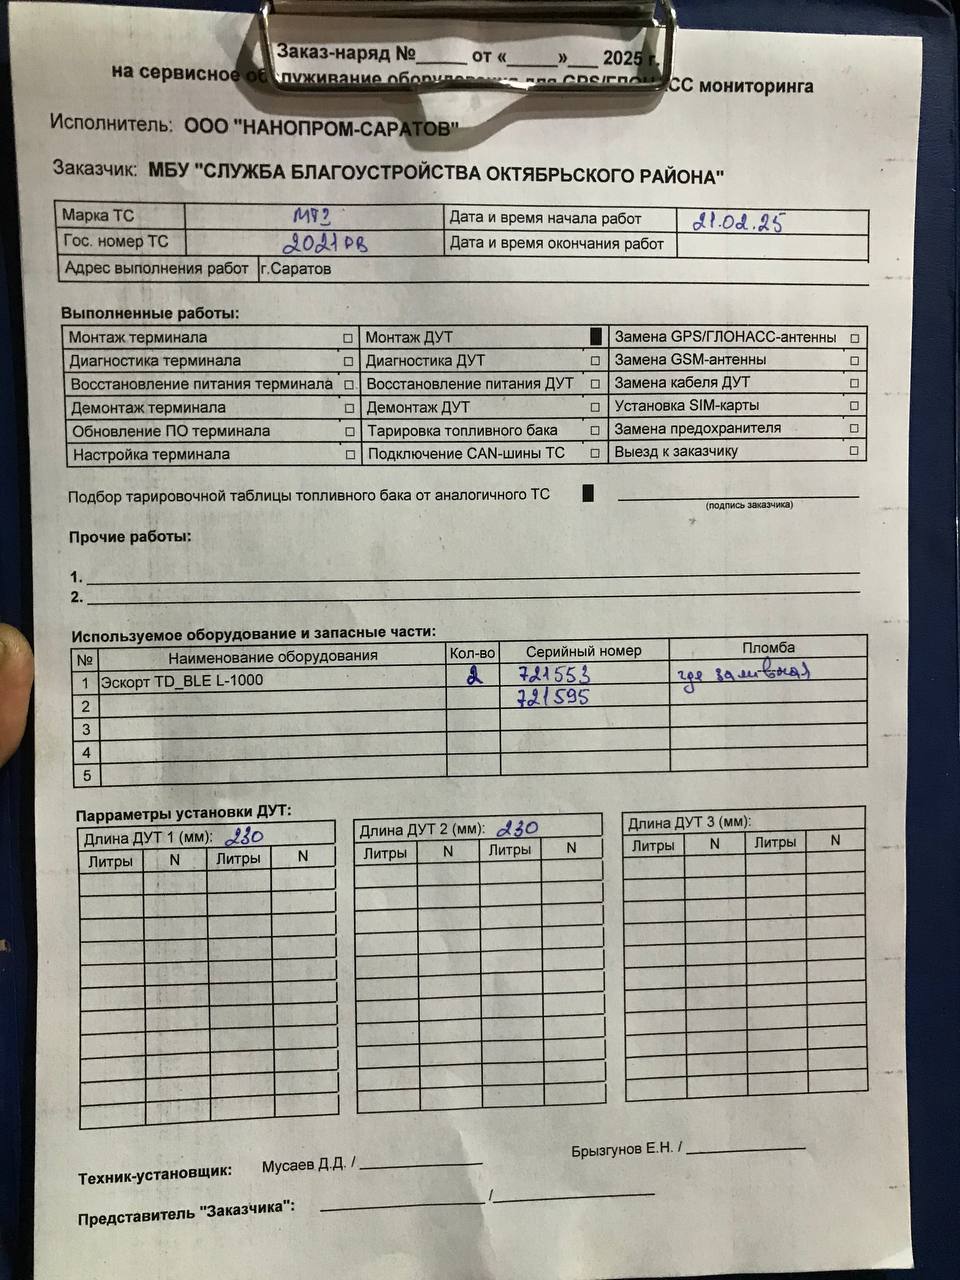 Заказ-наряд №_____ от «_____»___ 2025 г.
на сервисное обслуживание оборудования для GPS/ГЛОНАСС мониторинга
Исполнитель: ООО "НАНОПРОМ-САРАТОВ"
Заказчик: МБУ "СЛУЖБА БЛАГОУСТРОЙСТВА ОКТЯБРЬСКОГО РАЙОНА"
Марка ТС МТЗ Дата и время начала работ 21.02.25
Гос. номер ТС 2021 РВ Дата и время окончания работ
Адрес выполнения работ г.Саратов
Выполненные работы:
Монтаж терминала □ Монтаж ДУТ ■ Замена GPS/ГЛОНАСС-антенны □
Диагностика терминала □ Диагностика ДУТ □ Замена GSM-антенны □
Восстановление питания терминала □ Восстановление питания ДУТ □ Замена кабеля ДУТ □
Демонтаж терминала □ Демонтаж ДУТ □ Установка SIM-карты □
Обновление ПО терминала □ Тарировка топливного бака □ Замена предохранителя □
Настройка терминала □ Подключение CAN-шины ТС □ Выезд к заказчику □
Подбор тарировочной таблицы топливного бака от аналогичного ТС ■
(подпись заказчика)
Прочие работы:
1.
2.
Используемое оборудование и запасные части:
№ Наименование оборудования Кол-во Серийный номер Пломба
1 Эскорт TD_BLE L-1000 2 721553 где заливная
2 721595
3
4
5
Парраметры установки ДУТ:
Длина ДУТ 1 (мм): 230 Длина ДУТ 2 (мм): 230 Длина ДУТ 3 (мм):
Литры N Литры N Литры N Литры N Литры N Литры N
Техник-установщик: Мусаев Д.Д. / Брызгунов Е.Н. /
Представитель "Заказчика": /